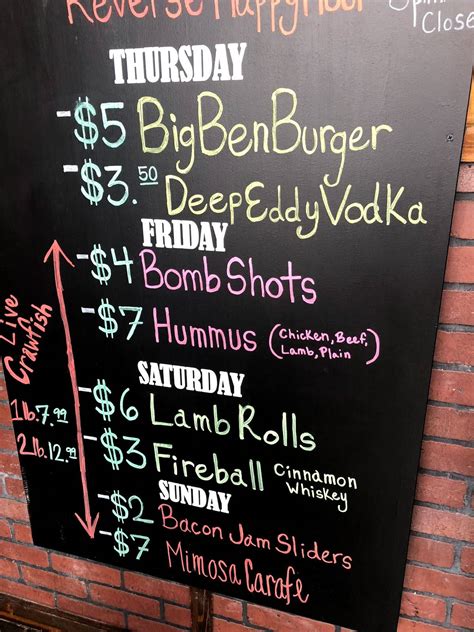 Reverse Happy Hour
Close
THURSDAY
-$5 Big Ben Burger
-$3.50 Deep Eddy Vodka
FRIDAY
-$4 Bomb Shots
-$7 Hummus (Chicken, Beef,
Lamb, Plain)
SATURDAY
-$6 Lamb Rolls
-$3 Fireball Cinnamon
Whiskey
SUNDAY
-$2 Bacon Jam Sliders
-$7 Mimosa Carafe
Live
Crawfish
1lb. 7.99
2lb. 12.99